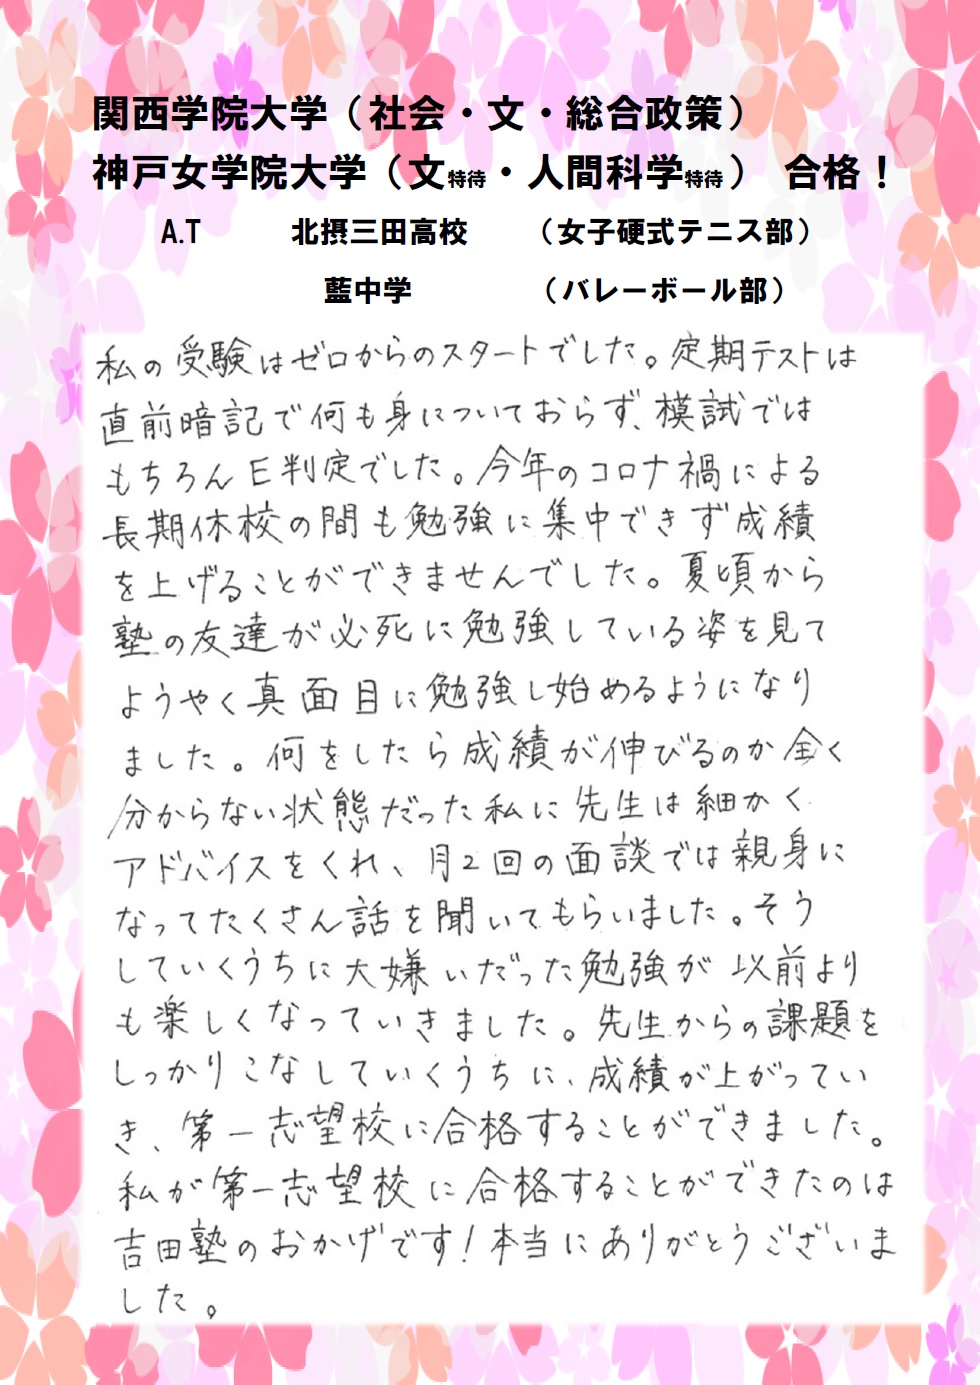 関西学院大学（社会・文・総合政策）
神戸女学院大学（文特待・人間科学特待） 合格！
A.T 北摂三田高校 （女子硬式テニス部）
藍中学 （バレーボール部）
私の受験はゼロからのスタートでした。定期テストは
直前暗記で何も身についておらず、模試では
もちろんE判定でした。今年のコロナ禍による
長期休校の間も勉強に集中できず成績
を上げることができませんでした。夏頃から
塾の友達が必死に勉強している姿を見て
ようやく真面目に勉強し始めるようになり
ました。何をしたら成績が伸びるのか全く
分からない状態だった私に先生は細かく
アドバイスをくれ、月2回の面談では親身に
なってたくさん話を聞いてもらいました。そう
していくうちに大嫌いだった勉強が以前より
も楽しくなっていきました。先生からの課題を
しっかりこなしていくうちに、成績が上がってい
き、第一志望校に合格することができました。
私が第一志望校に合格することができたのは
吉田塾のおかげです！本当にありがとうございま
した。